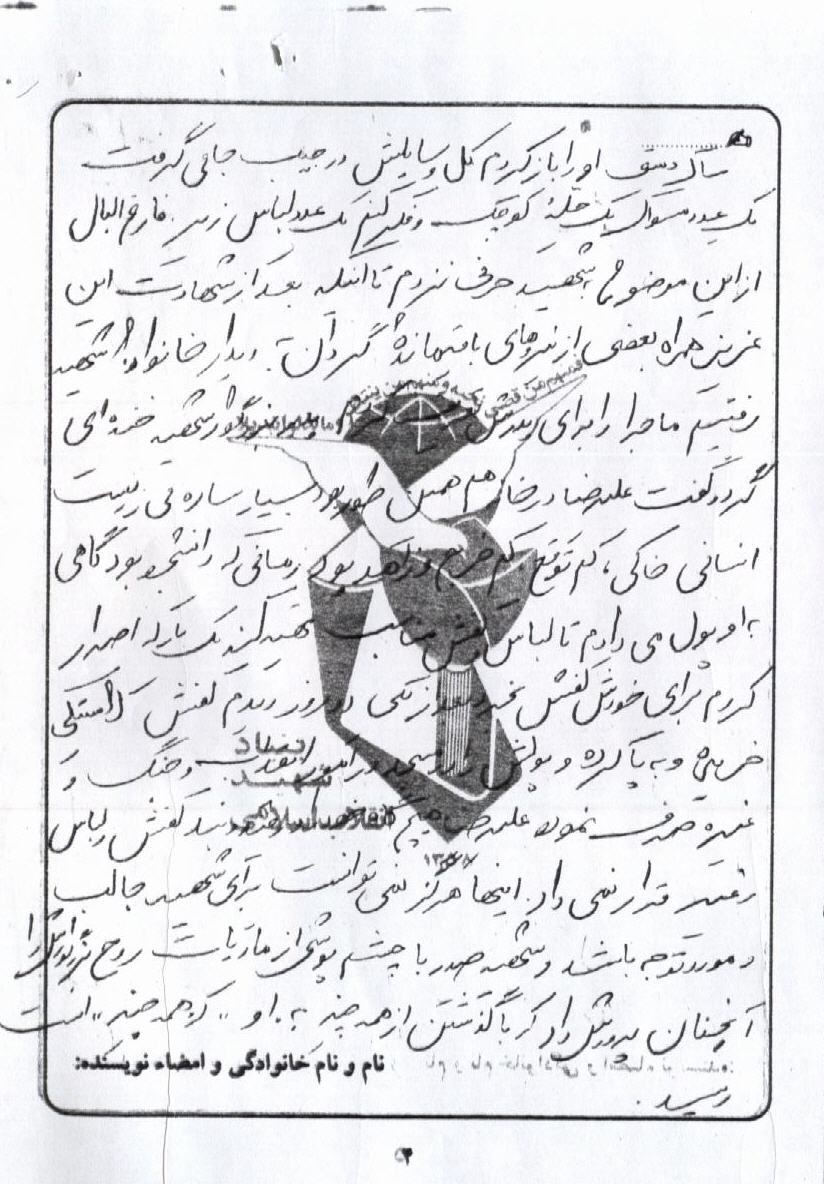 ساک دستی او را باز کردم کل وسایلش در جیب جا می گرفت
یک عدد مسواک یک حوله کوچک و فکر کنم یک عدد لباس زیر. فارغ البال
از این موضوع با شهید حرفی نزدم تا اینکه بعد از شهادت این
عزیز همراه بعضی از نیروهای باقیمانده گردان به دیدار خانواده شهید
رفتیم ماجرا را برای پدرش شهید خنده ای
کرد و گفت علیرضا در خانه هم همین طور بود بسیار ساده می زیست
انسانی خاکی، کم توقع کم خرج و زاهد بود. زمانی که دانشجو بود گاهی
به او پول می دادم تا لباس کفش مناسب تهیه کند یک بار که اصرار
کردم برای خودش کفش بخرد بعد از یکی دو روز دیدم کفش لاستیکی
خریده و به پا کرده و پولش را در امور جنگ و
غیره صرف نموده علیرضا هیچگاه خود را در بند کفش و لباس
و غیره قرار نمی داد. اینها هرگز نمی توانست برای شهید جالب
و مورد توجه باشد و شهید صدر با چشم پوشی از مادیات روح بزرگوارش را
آنچنان پرورش داد که با گذشتن از همه چیز به او "که همه چیز" است
رسید.
نام و نام خانوادگی و امضاء نویسنده:
بنیاد
شهید
انقلاب اسلامی
فمنهم من قضی نحبه و منهم من ینتظر
۳